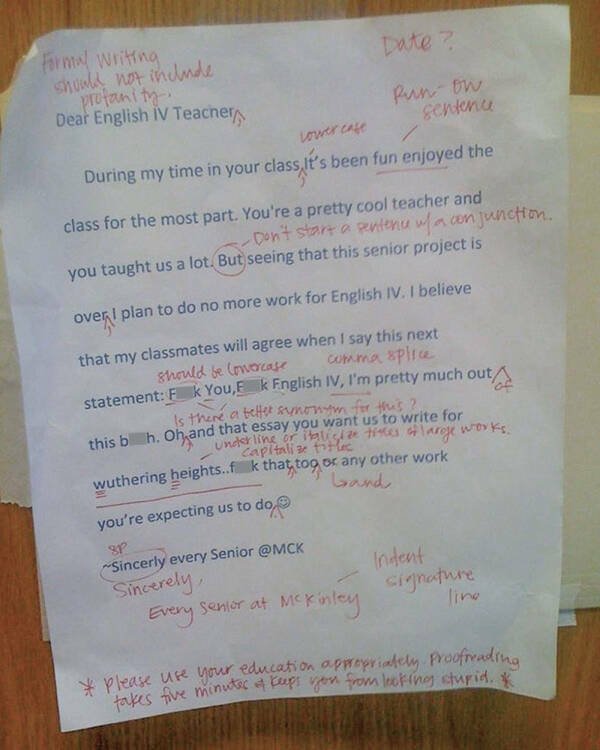 Formal writing
should not include
profanity.
Date?
Run-on
sentence
Dear English IV Teacher
lowercase
During my time in your class,It's been fun enjoyed the
class for the most part. You're a pretty cool teacher and
Don't start a sentence w/ a conjunction.
you taught us a lot. But seeing that this senior project is
over, I plan to do no more work for English IV. I believe
that my classmates will agree when I say this next
should be lowercase
comma splice
statement: F k You,F k English IV, I'm pretty much out
of
Is there a better synonym for this?
this b h. Oh, and that essay you want us to write for
underline or italicize titles of large works.
capitalize titles
wuthering heights..f k that, too, or any other work
and
you're expecting us to do.☺
sp
~Sincerly every Senior @MCK
Sincerely,
Indent
signature
line
Every Senior at McKinley
* Please use your education appropriately. Proofreading
takes five minutes & keeps you from looking stupid. *